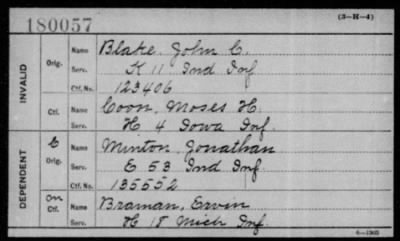 180057
(3-H-4)
INVALID
Orig. Name Blake John C.
Serv. K 11 Ind Inf
Ctf. No. 123406
Ctf. Name Coon, Moses H.
Serv. H 4 Iowa Inf.
DEPENDENT
C Orig. Name Minton Jonathan
Serv. E 53 Ind Inf.
Ctf. No. 135552
On Ctf. Name Braman, Ervin
Serv. H 18 Mich Inf.